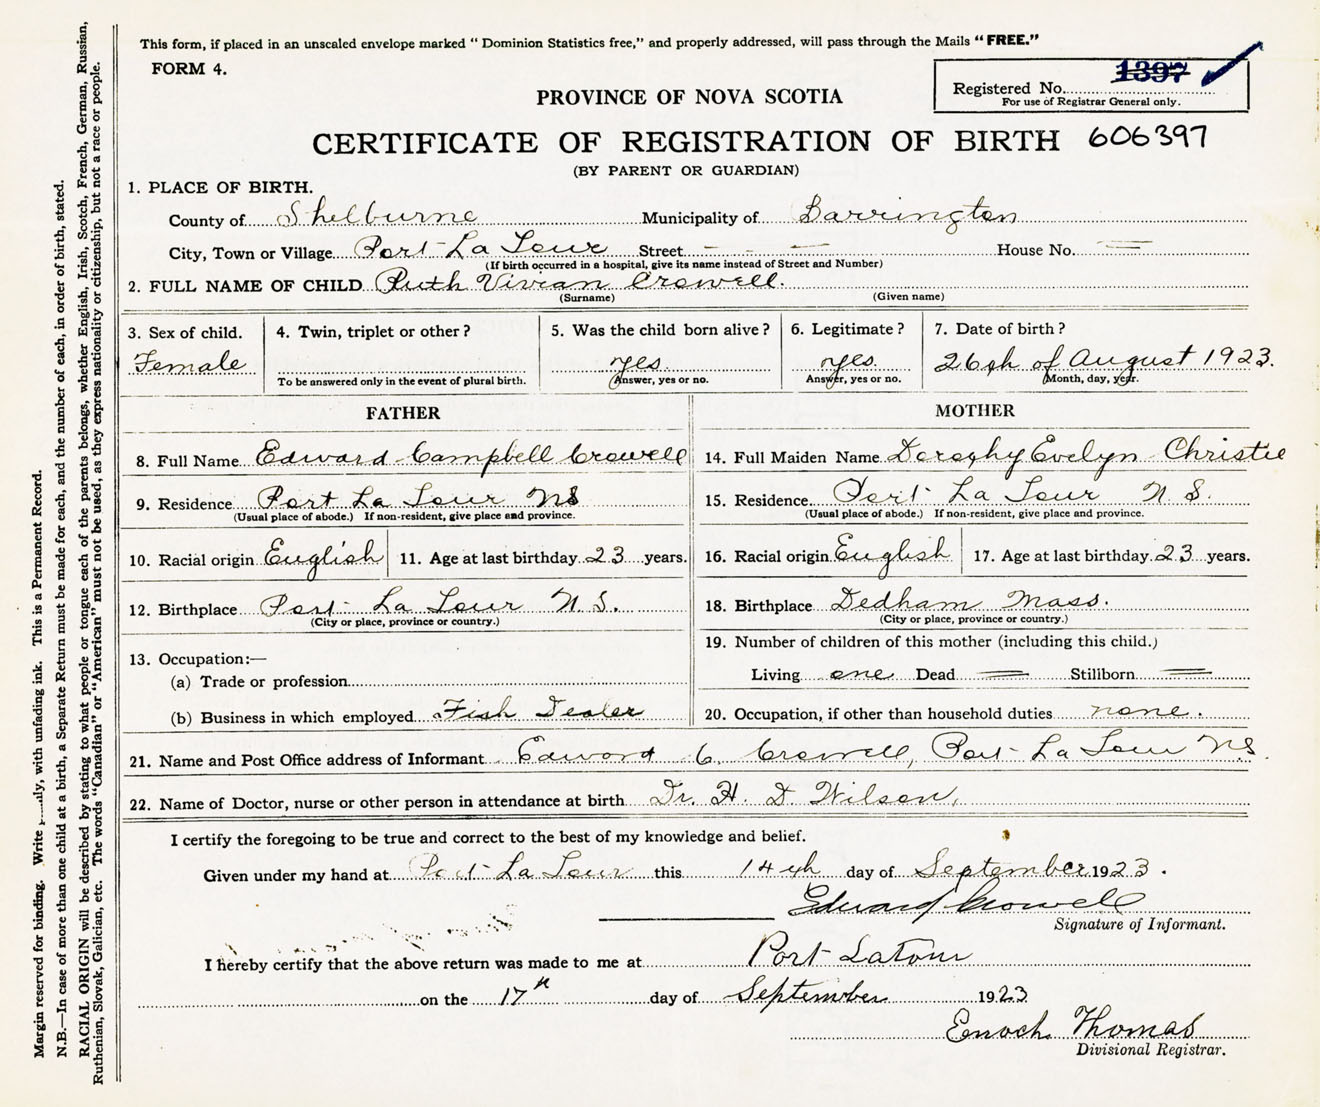 This form, if placed in an unscaled envelope marked " Dominion Statistics free," and properly addressed, will pass through the Mails "FREE."
FORM 4.
1397
Registered No.
For use of Registrar General only.
PROVINCE OF NOVA SCOTIA
CERTIFICATE OF REGISTRATION OF BIRTH 606397
(BY PARENT OR GUARDIAN)
1. PLACE OF BIRTH.
County of Shelburne Municipality of Barrington
City, Town or Village Port La Tour Street — — House No. =
(If birth occurred in a hospital, give its name instead of Street and Number)
2. FULL NAME OF CHILD Ruth Vivian Crowell.
(Surname) (Given name)
3. Sex of child. 4. Twin, triplet or other? 5. Was the child born alive? 6. Legitimate? 7. Date of birth?
Female yes. yes. 26th of August 1923.
To be answered only in the event of plural birth. (Answer, yes or no. Answer, yes or no. (Month, day, year.
FATHER MOTHER
8. Full Name Edward Campbell Crowell 14. Full Maiden Name Dorothy Evelyn Christie
9. Residence Port La Tour NS 15. Residence Port La Tour N. S.
(Usual place of abode.) If non-resident, give place and province. (Usual place of abode.) If non-resident, give place and province.
10. Racial origin English 11. Age at last birthday 23 years. 16. Racial origin English 17. Age at last birthday 23 years.
12. Birthplace Port La Tour N. S. 18. Birthplace Dedham Mass.
(City or place, province or country.) (City or place, province or country.)
13. Occupation:— 19. Number of children of this mother (including this child.)
(a) Trade or profession Living one Dead = Stillborn =
(b) Business in which employed Fish Dealer 20. Occupation, if other than household duties none.
21. Name and Post Office address of Informant Edward C. Crowell, Port La Tour NS.
22. Name of Doctor, nurse or other person in attendance at birth Dr. H. D. Wilson,
I certify the foregoing to be true and correct to the best of my knowledge and belief.
Given under my hand at Port La Tour this 14th day of September 1923.
Edward Crowell
Signature of Informant.
I hereby certify that the above return was made to me at Port Latour
on the 17th day of September 1923
Enoch Thomas
Divisional Registrar.
Margin reserved for binding. Write with unfading ink. This is a Permanent Record.
N.B.—In case of more than one child at a birth, a Separate Return must be made for each, and the number of each, in order of birth, stated.
RACIAL ORIGIN will be described by stating to what people or tongue each of the parents belongs, whether English, Irish, Scotch, French, German, Russian,
Ruthenian, Slovak, Galician, etc. The words "Canadian" or "American" must not be used, as they express nationality or citizenship, but not a race or people.